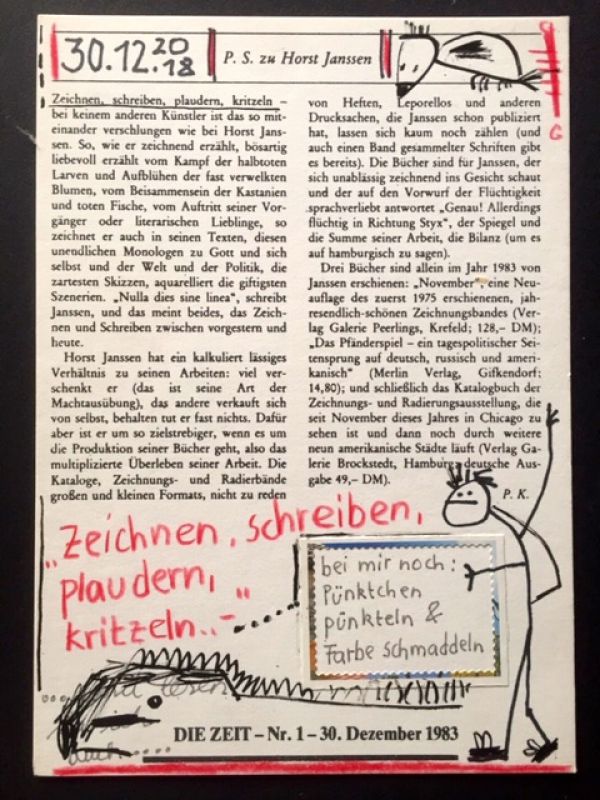 30.12.2018
P. S. zu Horst Janssen
Zeichnen, schreiben, plaudern, kritzeln –
bei keinem anderen Künstler ist das so mit-
einander verschlungen wie bei Horst Jans-
sen. So, wie er zeichnend erzählt, bösartig
liebevoll erzählt vom Kampf der halbtoten
Larven und Aufblühen der fast verwelkten
Blumen, vom Beisammensein der Kastanien
und toten Fische, vom Auftritt seiner Vor-
gänger oder literarischen Lieblinge, so
zeichnet er auch in seinen Texten, diesen
unendlichen Monologen zu Gott und sich
selbst und der Welt und der Politik, die
zartesten Skizzen, aquarelliert die giftigsten
Szenerien. „Nulla dies sine linea", schreibt
Janssen, und das meint beides, das Zeich-
nen und Schreiben zwischen vorgestern und
heute.
Horst Janssen hat ein kalkuliert lässiges
Verhältnis zu seinen Arbeiten: viel ver-
schenkt er (das ist seine Art der
Machtausübung), das andere verkauft sich
von selbst, behalten tut er fast nichts. Dafür
aber ist er um so zielstrebiger, wenn es um
die Produktion seiner Bücher geht, also das
multiplizierte Überleben seiner Arbeit. Die
Kataloge, Zeichnungs- und Radierbände
großen und kleinen Formats, nicht zu reden
von Heften, Leporellos und anderen
Drucksachen, die Janssen schon publiziert
hat, lassen sich kaum noch zählen (und
auch einen Band gesammelter Schriften gibt
es bereits). Die Bücher sind für Janssen, der
sich unablässig zeichnend ins Gesicht schaut
und der auf den Vorwurf der Flüchtigkeit
sprachverliebt antwortet „Genau! Allerdings
flüchtig in Richtung Styx", der Spiegel und
die Summe seiner Arbeit, die Bilanz (um es
auf hamburgisch zu sagen).
Drei Bücher sind allein im Jahr 1983 von
Janssen erschienen: „November", eine Neu-
auflage des zuerst 1975 erschienenen, jah-
resendlich-schönen Zeichnungsbandes (Ver-
lag Galerie Peerlings, Krefeld; 128,– DM);
„Das Pfänderspiel – ein tagespolitischer Sei-
tensprung auf deutsch, russisch und ameri-
kanisch" (Merlin Verlag, Gifkendorf;
14,80); und schließlich das Katalogbuch der
Zeichnungs- und Radierungsausstellung, die
seit November dieses Jahres in Chicago zu
sehen ist und dann noch durch weitere
neun amerikanische Städte läuft (Verlag Ga-
lerie Brockstedt, Hamburg, deutsche Aus-
gabe 49,– DM).
P. K.
„Zeichnen, schreiben,
plaudern,
kritzeln..–"
bei mir noch:
Pünktchen
pünkteln &
Farbe schmaddeln
lesen
auch....
DIE ZEIT – Nr. 1 – 30. Dezember 1983